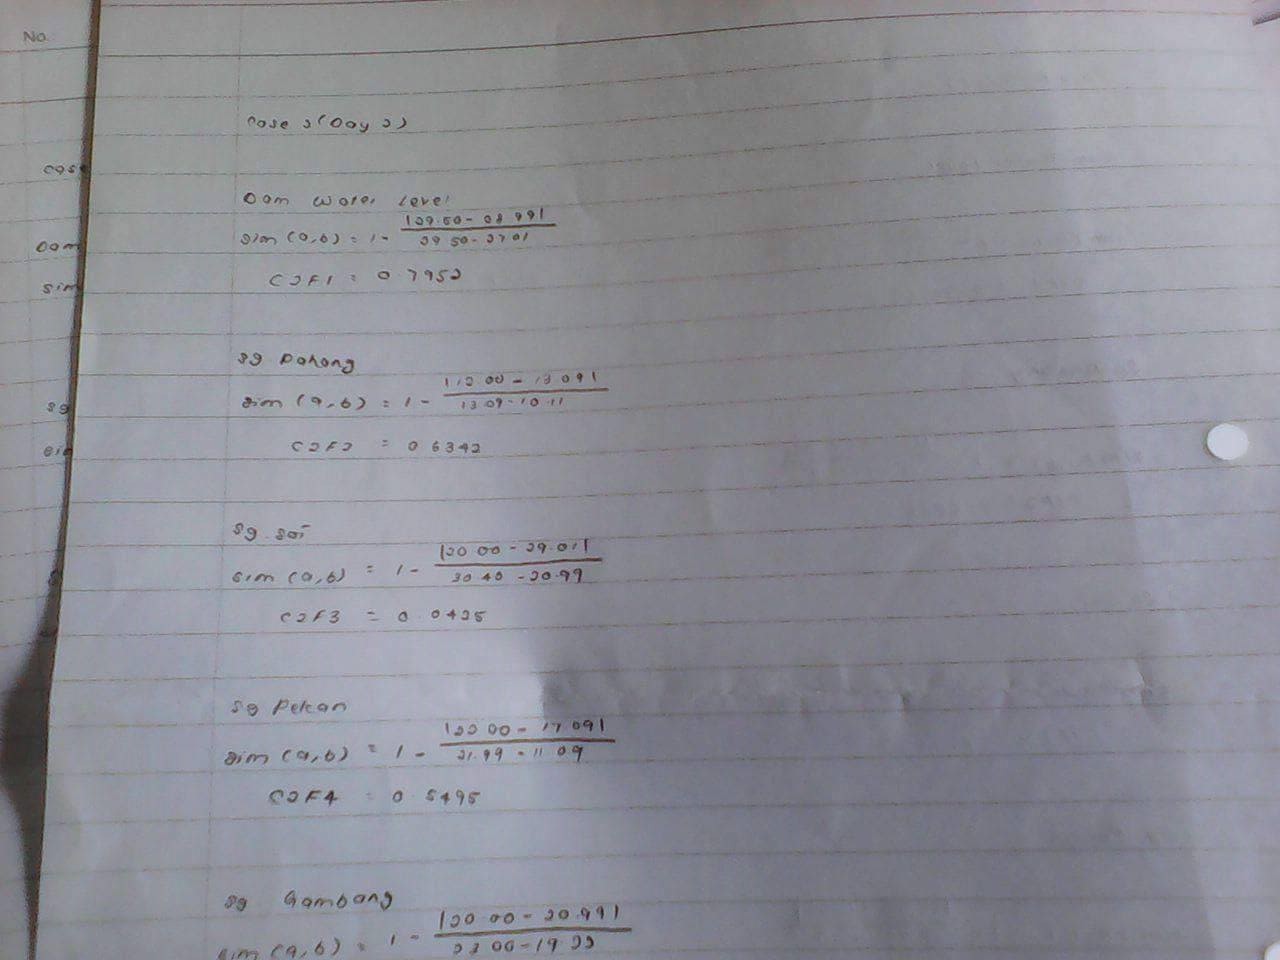 No.
Case 2 (Day 2)
Dam Water Level
sim (a,b) = 1 - |29.50 - 28.99| / 29.50 - 27.01
C2F1 = 0.7952
Sg Pahang
sim (a,b) = 1 - |12.00 - 13.09| / 13.09 - 10.11
C2F2 = 0.6342
Sg. Soi
sim (a,b) = 1 - |20.00 - 29.01| / 30.40 - 20.99
C2F3 = 0.0425
Sg Pekan
sim (a,b) = 1 - |22.00 - 17.09| / 21.99 - 11.09
C2F4 = 0.5495
Sg Gambang
sim (a,b) = 1 - |20.00 - 20.99| / 23.00 - 19.22
cas
Dam
sim
sg